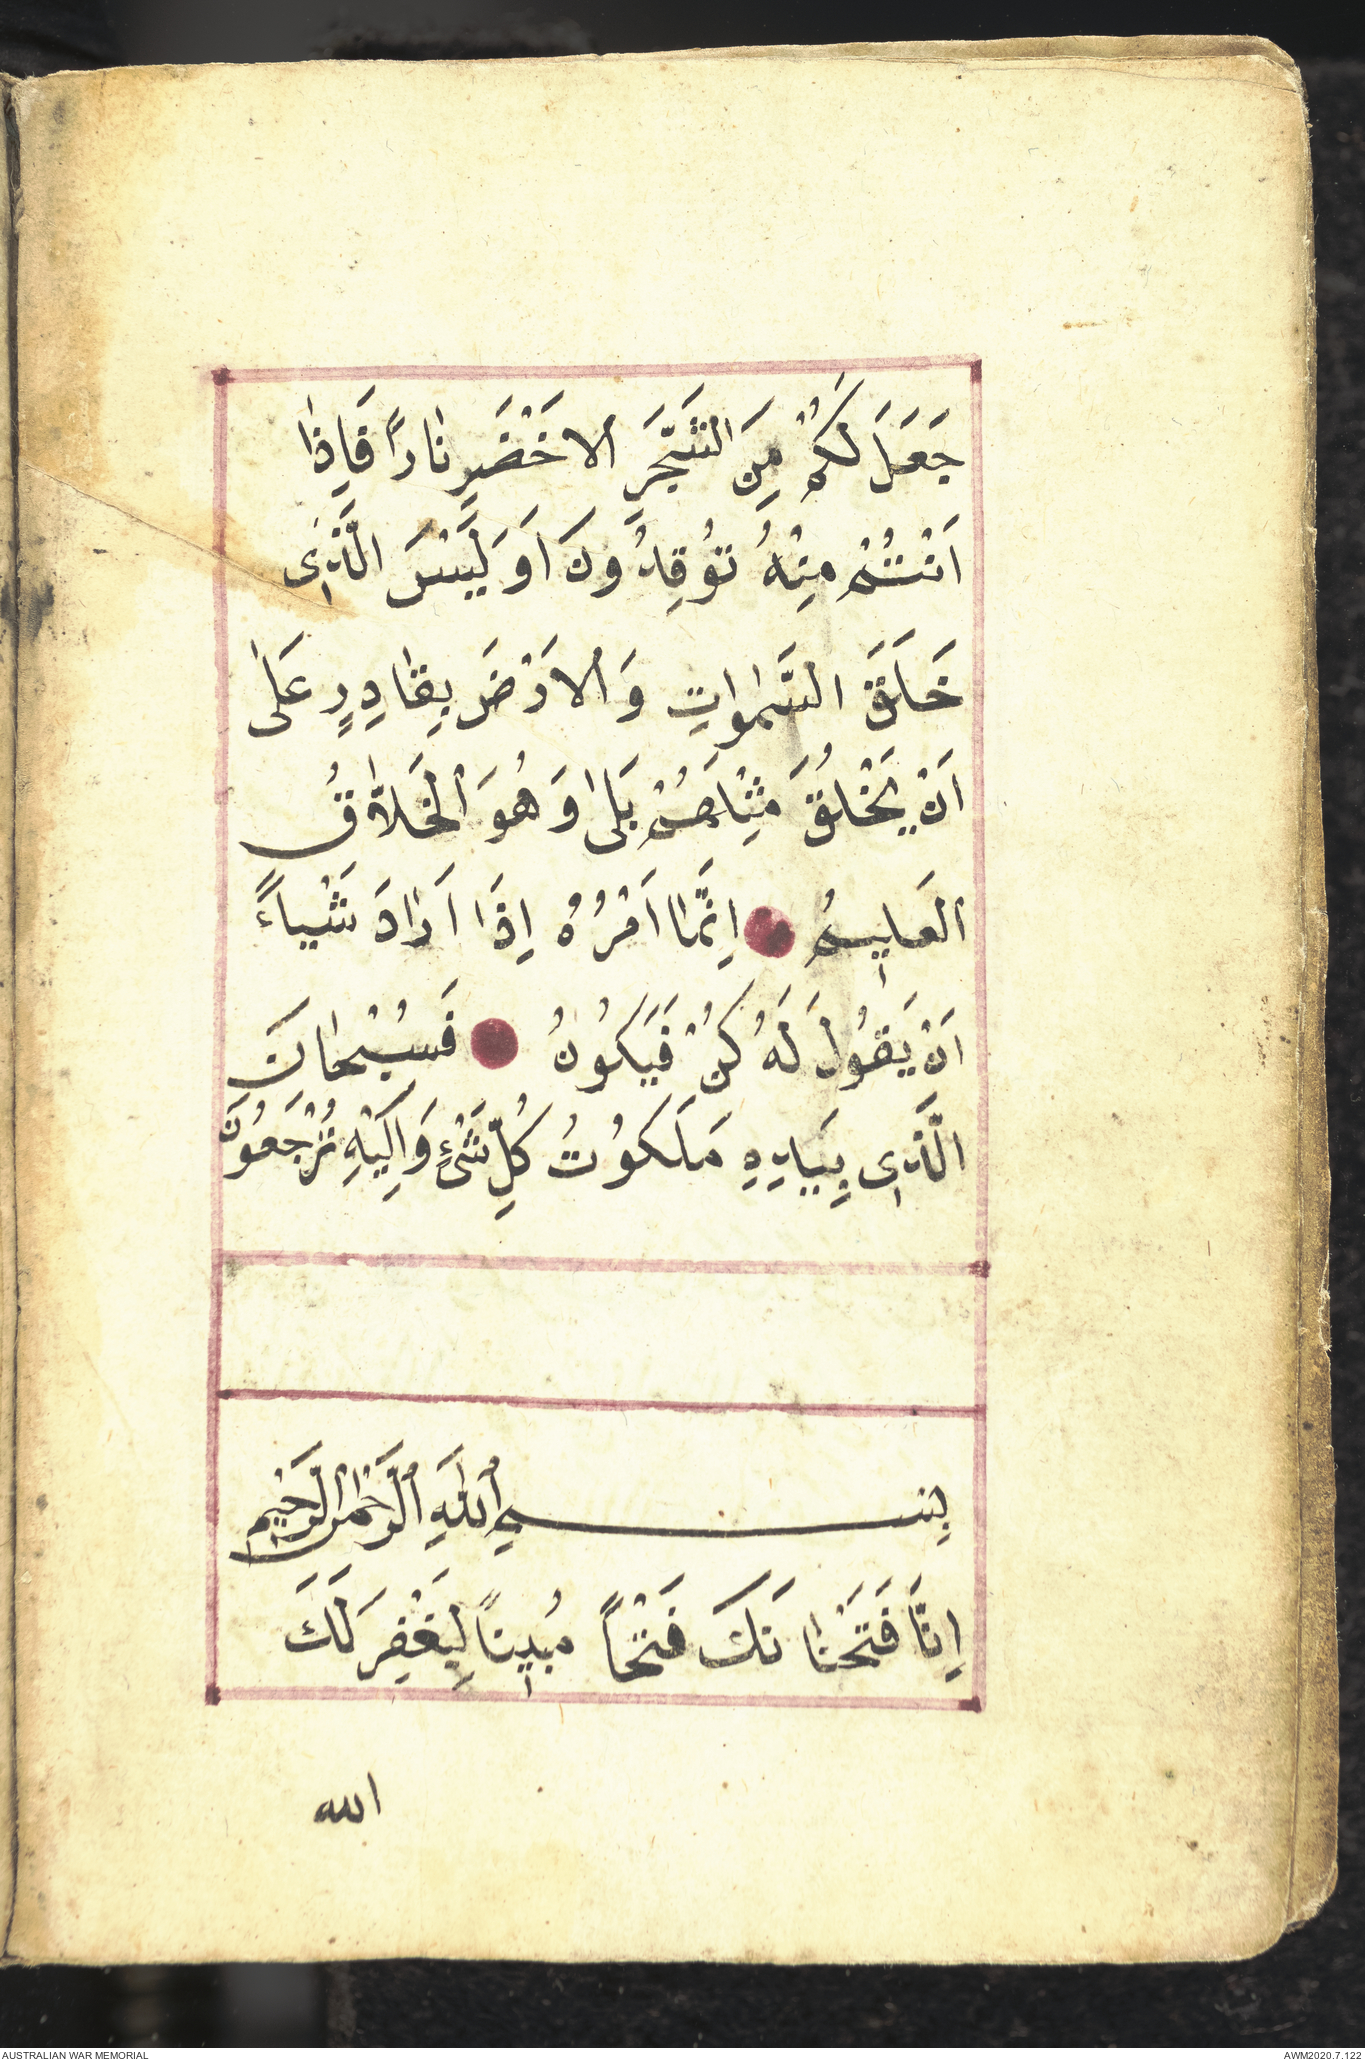 جَعَلَ لَكُمْ مِنَ الشَّجَرِ الْاَخْضَرِ نَارًا فَاِذَا
اَنْتُمْ مِنْهُ تُوقِدُونَ اَوَلَيْسَ الَّذِى
خَلَقَ السَّمٰوَاتِ وَالْاَرْضَ بِقَادِرٍ عَلٰى
اَنْ يَخْلُقَ مِثْلَهُمْ بَلٰى وَهُوَ الْخَلَّاقُ
الْعَلِيمُ اِنَّمَا اَمْرُهُ اِذَا اَرَادَ شَيْـاءً
اَنْ يَقُولَ لَهُ كُنْ فَيَكُونُ فَسُبْحَانَ
الَّذِى بِيَدِهِ مَلَكُوتُ كُلِّ شَىْءٍ وَاِلَيْهِ تُرْجَعُونَ
بِسْمِ اللّٰهِ الرَّحْمٰنِ الرَّحِيمِ
اِنَّا فَتَحْنَا لَكَ فَتْحًا مُبِينًا لِيَغْفِرَ لَكَ
الله
AUSTRALIAN WAR MEMORIAL AWM2020.7.122